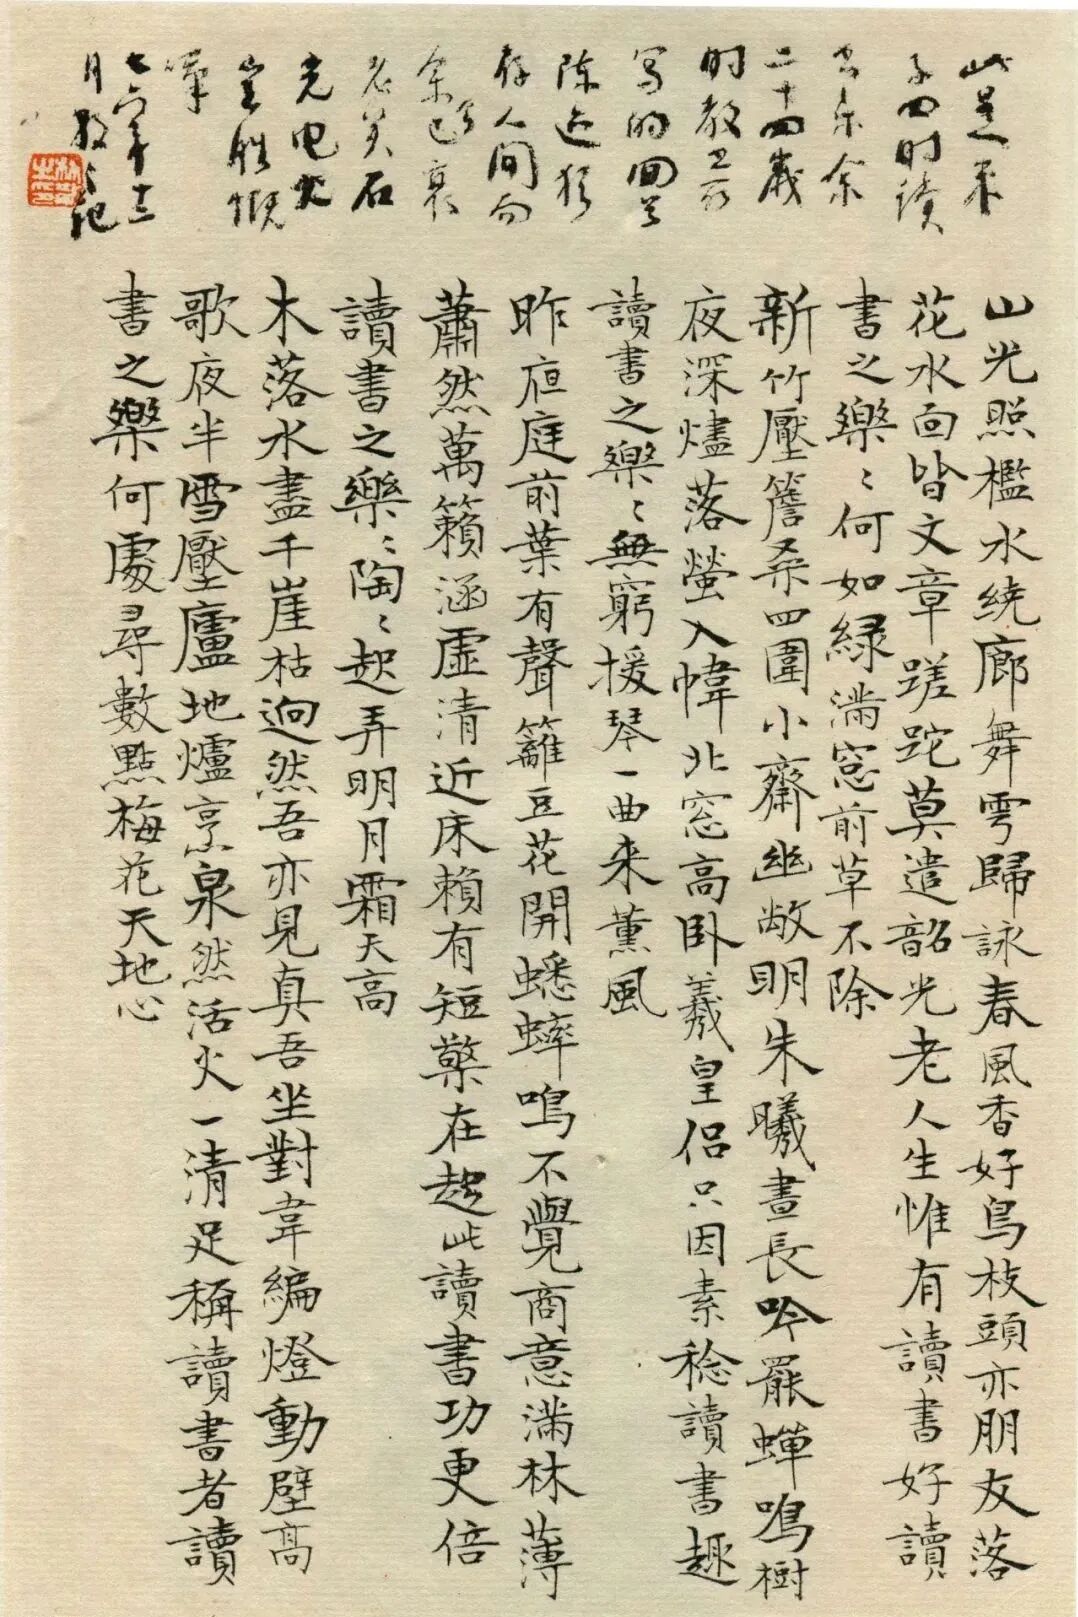 此是朱
子四时读
书乐余
二十四岁
时教
写的回首
陈迹犹
存人间而
余已衰
老矣石
光电火
岂胜慨
嘆
七六年十二
月散之记
山光照檻水繞廊舞雩歸詠春風香好鳥枝頭亦朋友落
花水面皆文章蹉跎莫遣韶光老人生惟有讀書好讀
書之樂〻何如緑滿窓前草不除
新竹壓簷桑四圍小齋幽敞明朱曦晝長吟罷蟬鳴樹
夜深燼落螢入幃北窓高卧羲皇侶只因素稔讀書趣
讀書之樂〻無窮援琴一曲来薰風
昨夜庭前葉有聲籬豆花開蟋蟀鳴不覺商意滿林薄
蕭然萬籟涵虛清近床賴有短檠在趂此讀書功更倍
讀書之樂〻陶〻起弄明月霜天高
木落水盡千崖枯迥然吾亦見真吾坐對韋編燈動壁高
歌夜半雪壓廬地爐烹泉然活火一清足稱讀書者讀
書之樂何處尋數點梅花天地心